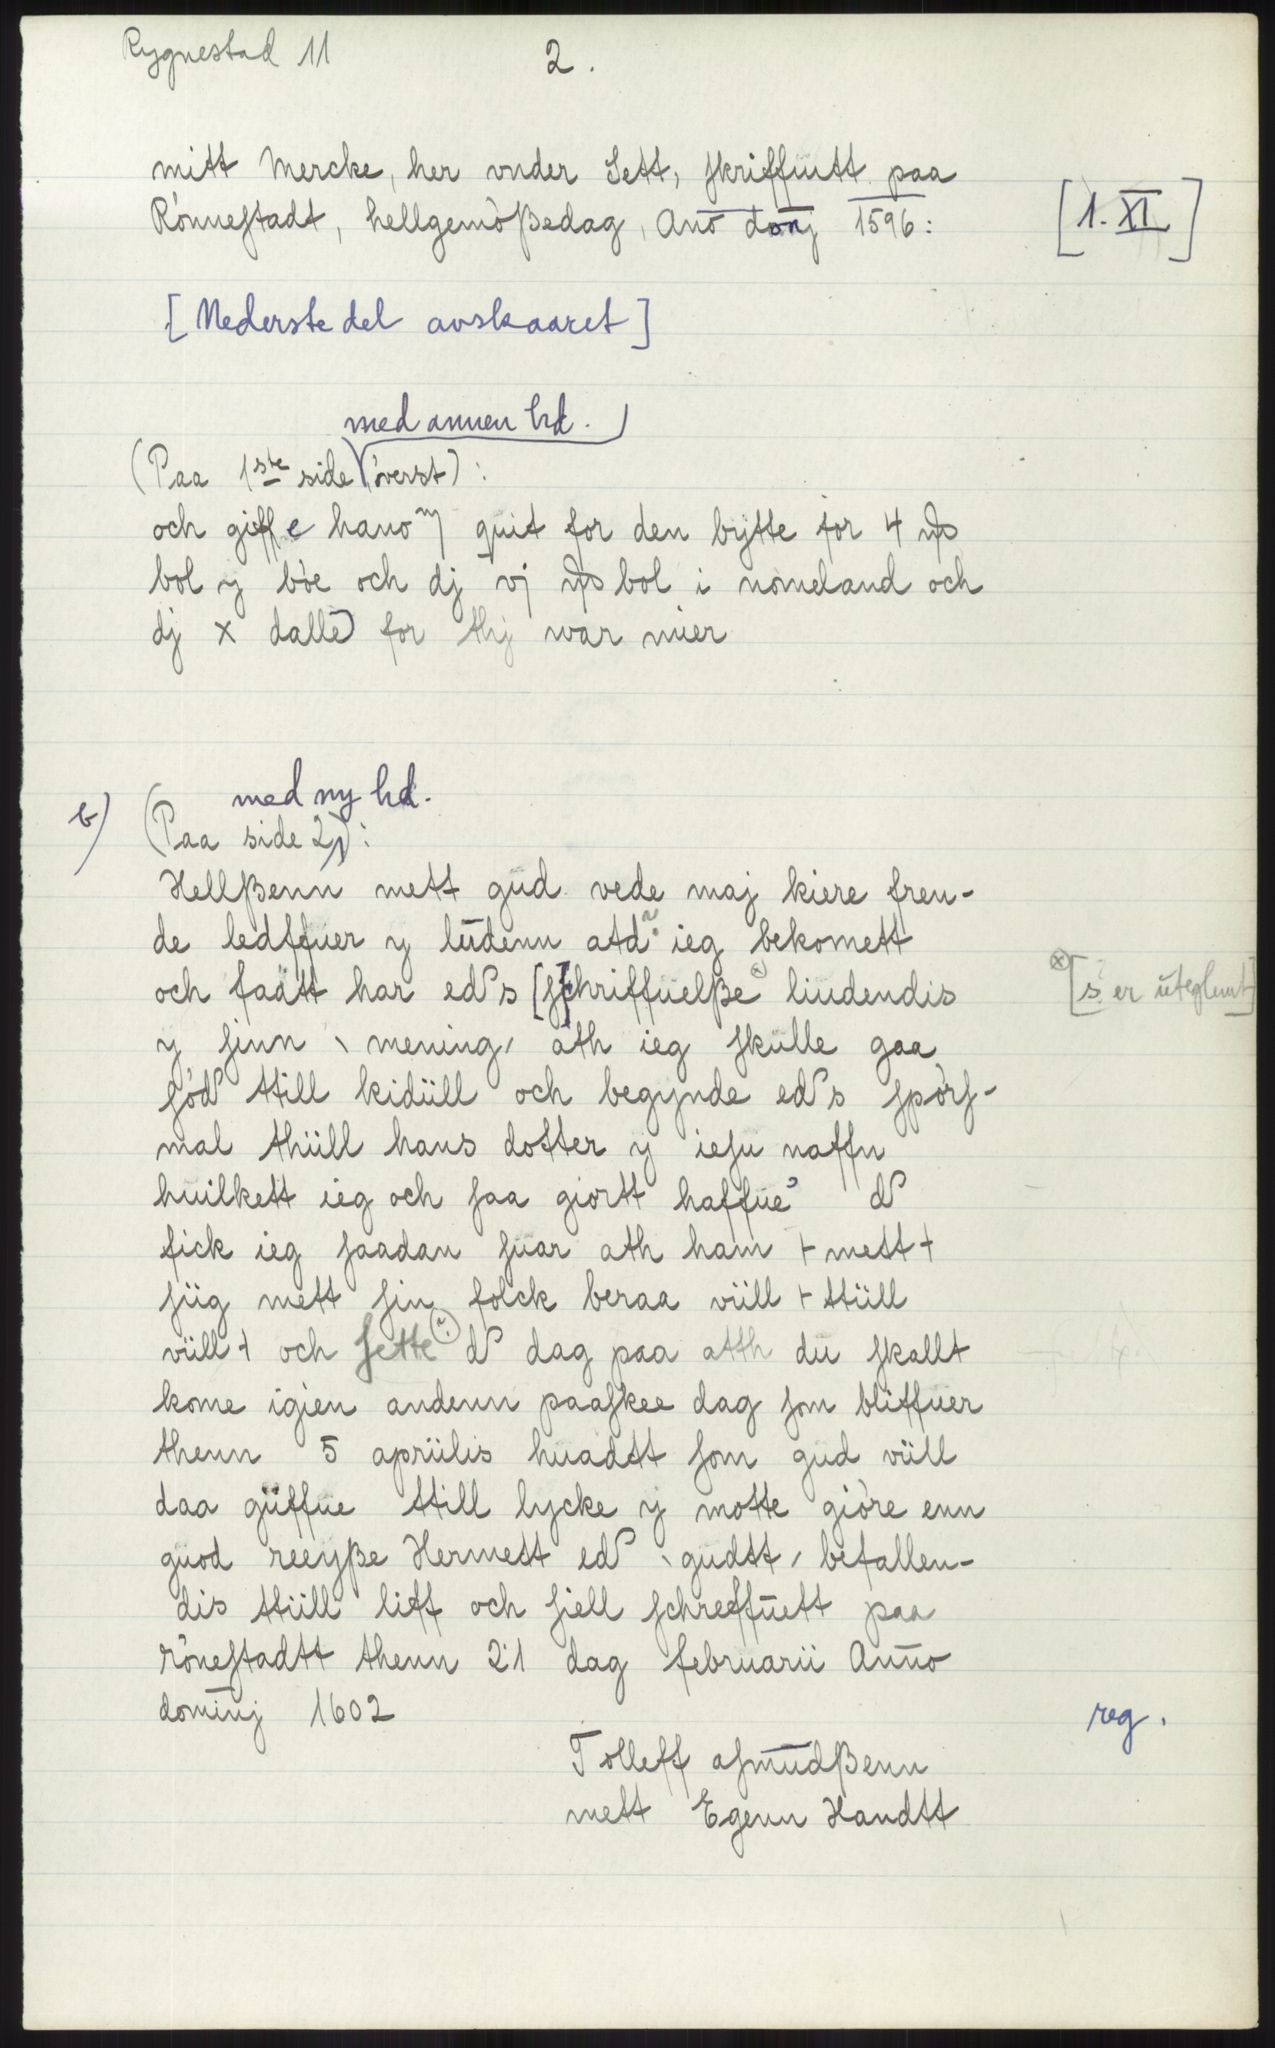 Rygnestad 11
2.
mitt Mercke, her vnder Sett, skriffuitt paa
Rónnestadt, hellgemößedag, Anō donj 1596:
[1. XI]
[Nederste del avskaaret]
med annen hd.
(Paa 1ste side óverst):
och giffe hanom quit for den bytte for 4
bol y bòe och dj vj bol i nomeland och
dj x dalle for thj war mier
b)
med ny hd.
(Paa side 2):
Hellßenn mett gud vede maj kiere fren-
de ledffuer y lüdenn atd ieg bekomett
och faatt har ed s [s]chriffuelße x) liudendis
x) [s er uteglemt]
y sinn mening ath ieg skulle gaa
sód till kidüll och begynde ed s spörs-
mal thüll hans dotter y iesu naffn
huilkett ieg och saa giortt haffue d
fick ieg saadan suar ath ham + mett +
süg mett sin folck beraa vüll + ttüll
vüll + och sette d dag paa atth du skallt
kome igien andenn paaskee dag som bliffuer
thenn 5 aprülis huadtt som gud vüll
daa güffue ttill lycke y motte giòre enn
guod reeyße Hermett ed gudtt befallen-
dis ttüll liff och siell schreffuett paa
rónestadtt thenn 21 dag februarii Anno
dominj 1602
reg.
Tolleff asmudßenn
mett Egenn Handtt